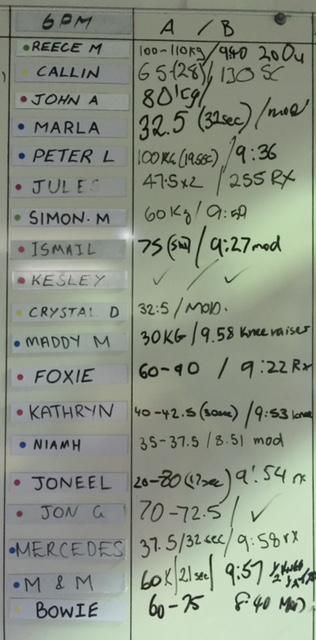 6PM A / B
REECE M 100-110kg / 940 200m
CALLIN 65 (28) / 130 SC
JOHN A 80kg /
MARLA 32.5 (32sec) / mod
PETER L 100KG (19sec) / 9:36
JULES 47.5x2 / 255 RX
SIMON. M 60Kg / 9:59
ISMAIL 75 / 9:27 mod
KESLEY ✓ / ✓
CRYSTAL D 32.5 / MOD.
MADDY M 30KG / 9.58 knee raises
FOXIE 60-90 / 9:22 Rx
KATHRYN 40-42.5 (30sec) / 9:53 knee
NIAMH 35-37.5 / 8.51 mod
JONEEL 20-80 (17sec) / 9:54 rx
JON G 70-72.5 / ✓
MERCEDES 37.5 / 32sec / 9:58 rx
M & M 60K / 21sec / 9:57
BOWIE 60-75 8:40 MOD